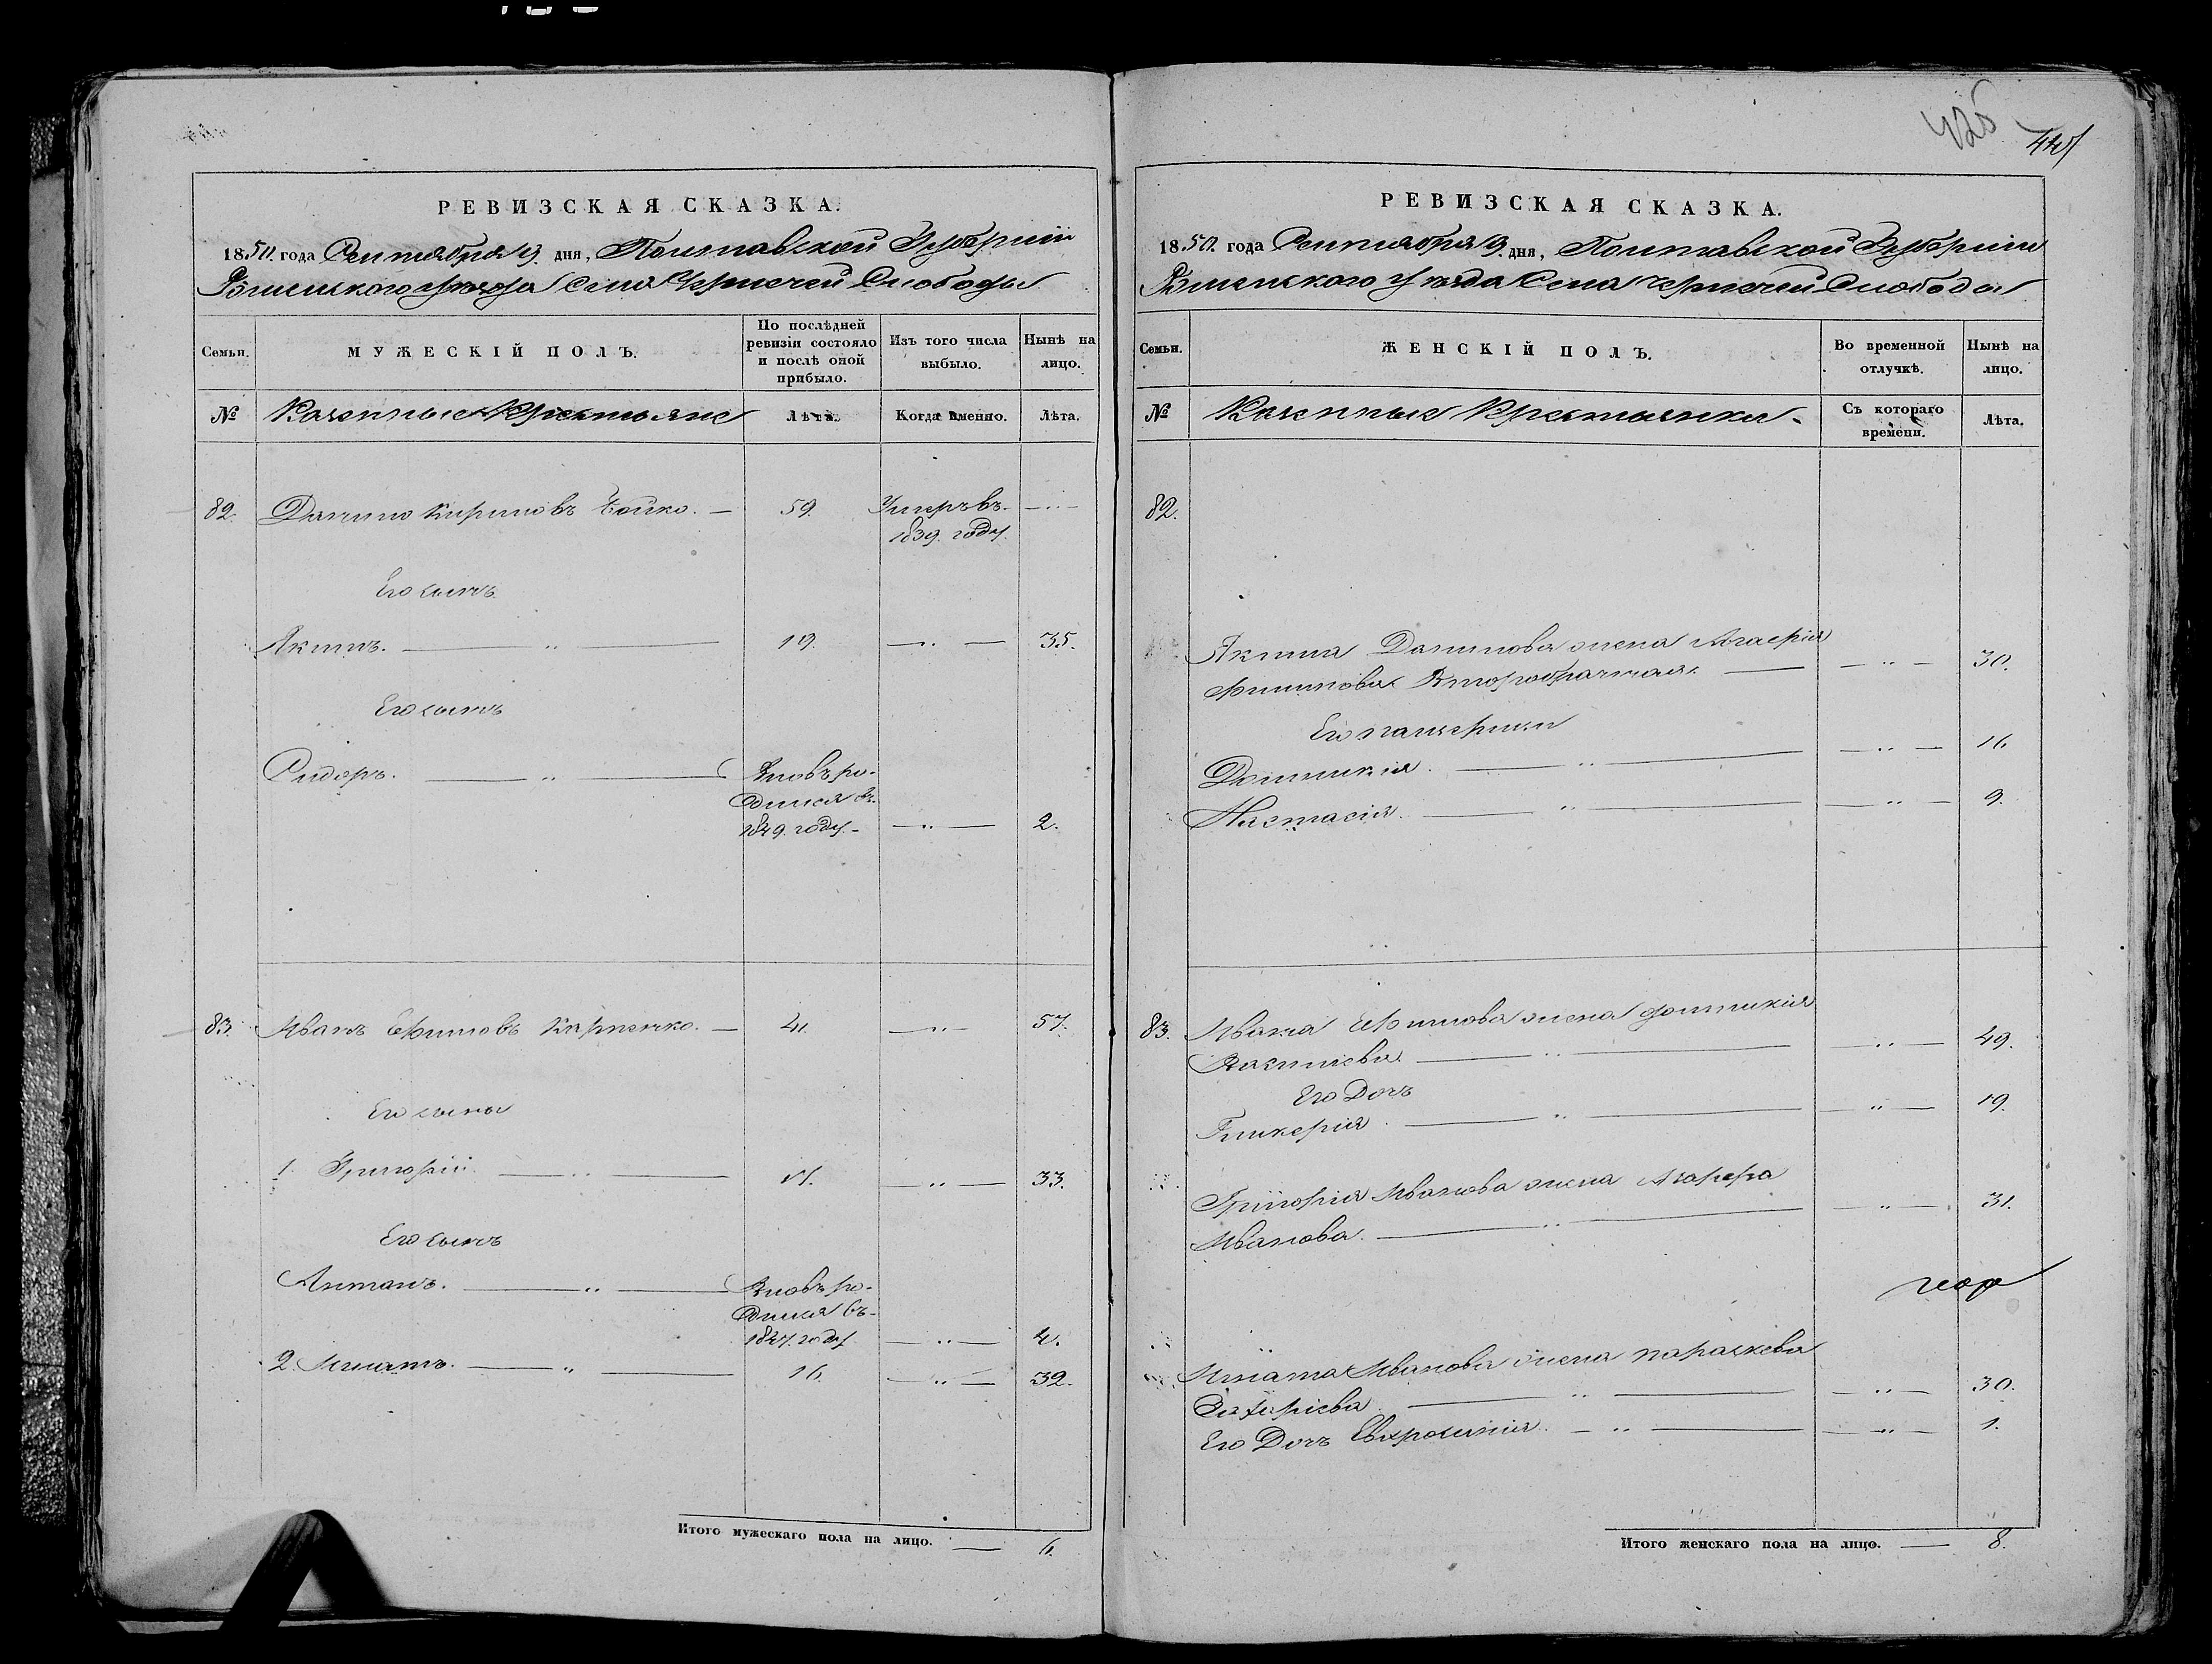 425
РЕВИЗСКАЯ СКАЗКА.
1850. года Сентября 9. дня, Полтавской Губернии
Роменского уезда Села Чернечей Слободы
Семьи.
МУЖЕСКІЙ ПОЛЪ.
По послѣдней ревизіи состояло и послѣ оной прибыло.
Изъ того числа выбыло.
Нынѣ на лицо.
№
Казенные Крестьяне
Лѣта.
Когда именно.
Лѣта.
82. Данило Кириловъ Бойко. — 59. Умеръ въ —"—
1839. году.
Его сынъ
Якимъ. — " — 19. — " — 35.
Его сынъ
Сидоръ. — " — Вновь ро-
дился въ
1849. году. — — " — 2.
83. Иванъ Ефимовъ Карпенко. — 41. — " — 57.
Его сыны
1. Григорій — " — 17. — " — 33.
Его сынъ
Антонъ. — " — Вновь ро-
дился въ
1847. году — " — 4.
2. Игнатъ. — " — 16. — " — 32.
Итого мужескаго пола на лицо. — 6.
РЕВИЗСКАЯ СКАЗКА.
1850. года Сентября 9. дня, Полтавской Губернии
Роменского уезда Села Чернечей Слободы
Семьи.
ЖЕНСКІЙ ПОЛЪ.
Во временной отлучкѣ.
Нынѣ на лицо.
№
Казенные Крестьянки.
Съ котораго времени.
Лѣта.
82.
Якима Данилова жена
Филипова Второбрачная. — — " — 30.
Его падчерики
Домникія. — " — — " — 16.
Настасія. — " — — " — 9.
83. Ивана Ефимова жена Домникія
— " — — " — 49.
Его Дочь
Гликерія. — " — — " — 19.
Григорія Иванова жена
Иванова. — " — — " — 31.
Игната Иванова жена Параскева
— " — — " — 30.
Его Дочь Евфросинія. — " — — " — 1.
Итого женскаго пола на лицо. — 8.